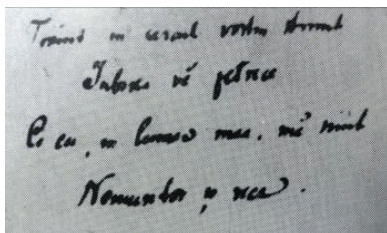 Traind in cercul vostru strimt
vĕ petrece
Ci eu, in lumea mea, mĕ simt
Nemuritor și rece.